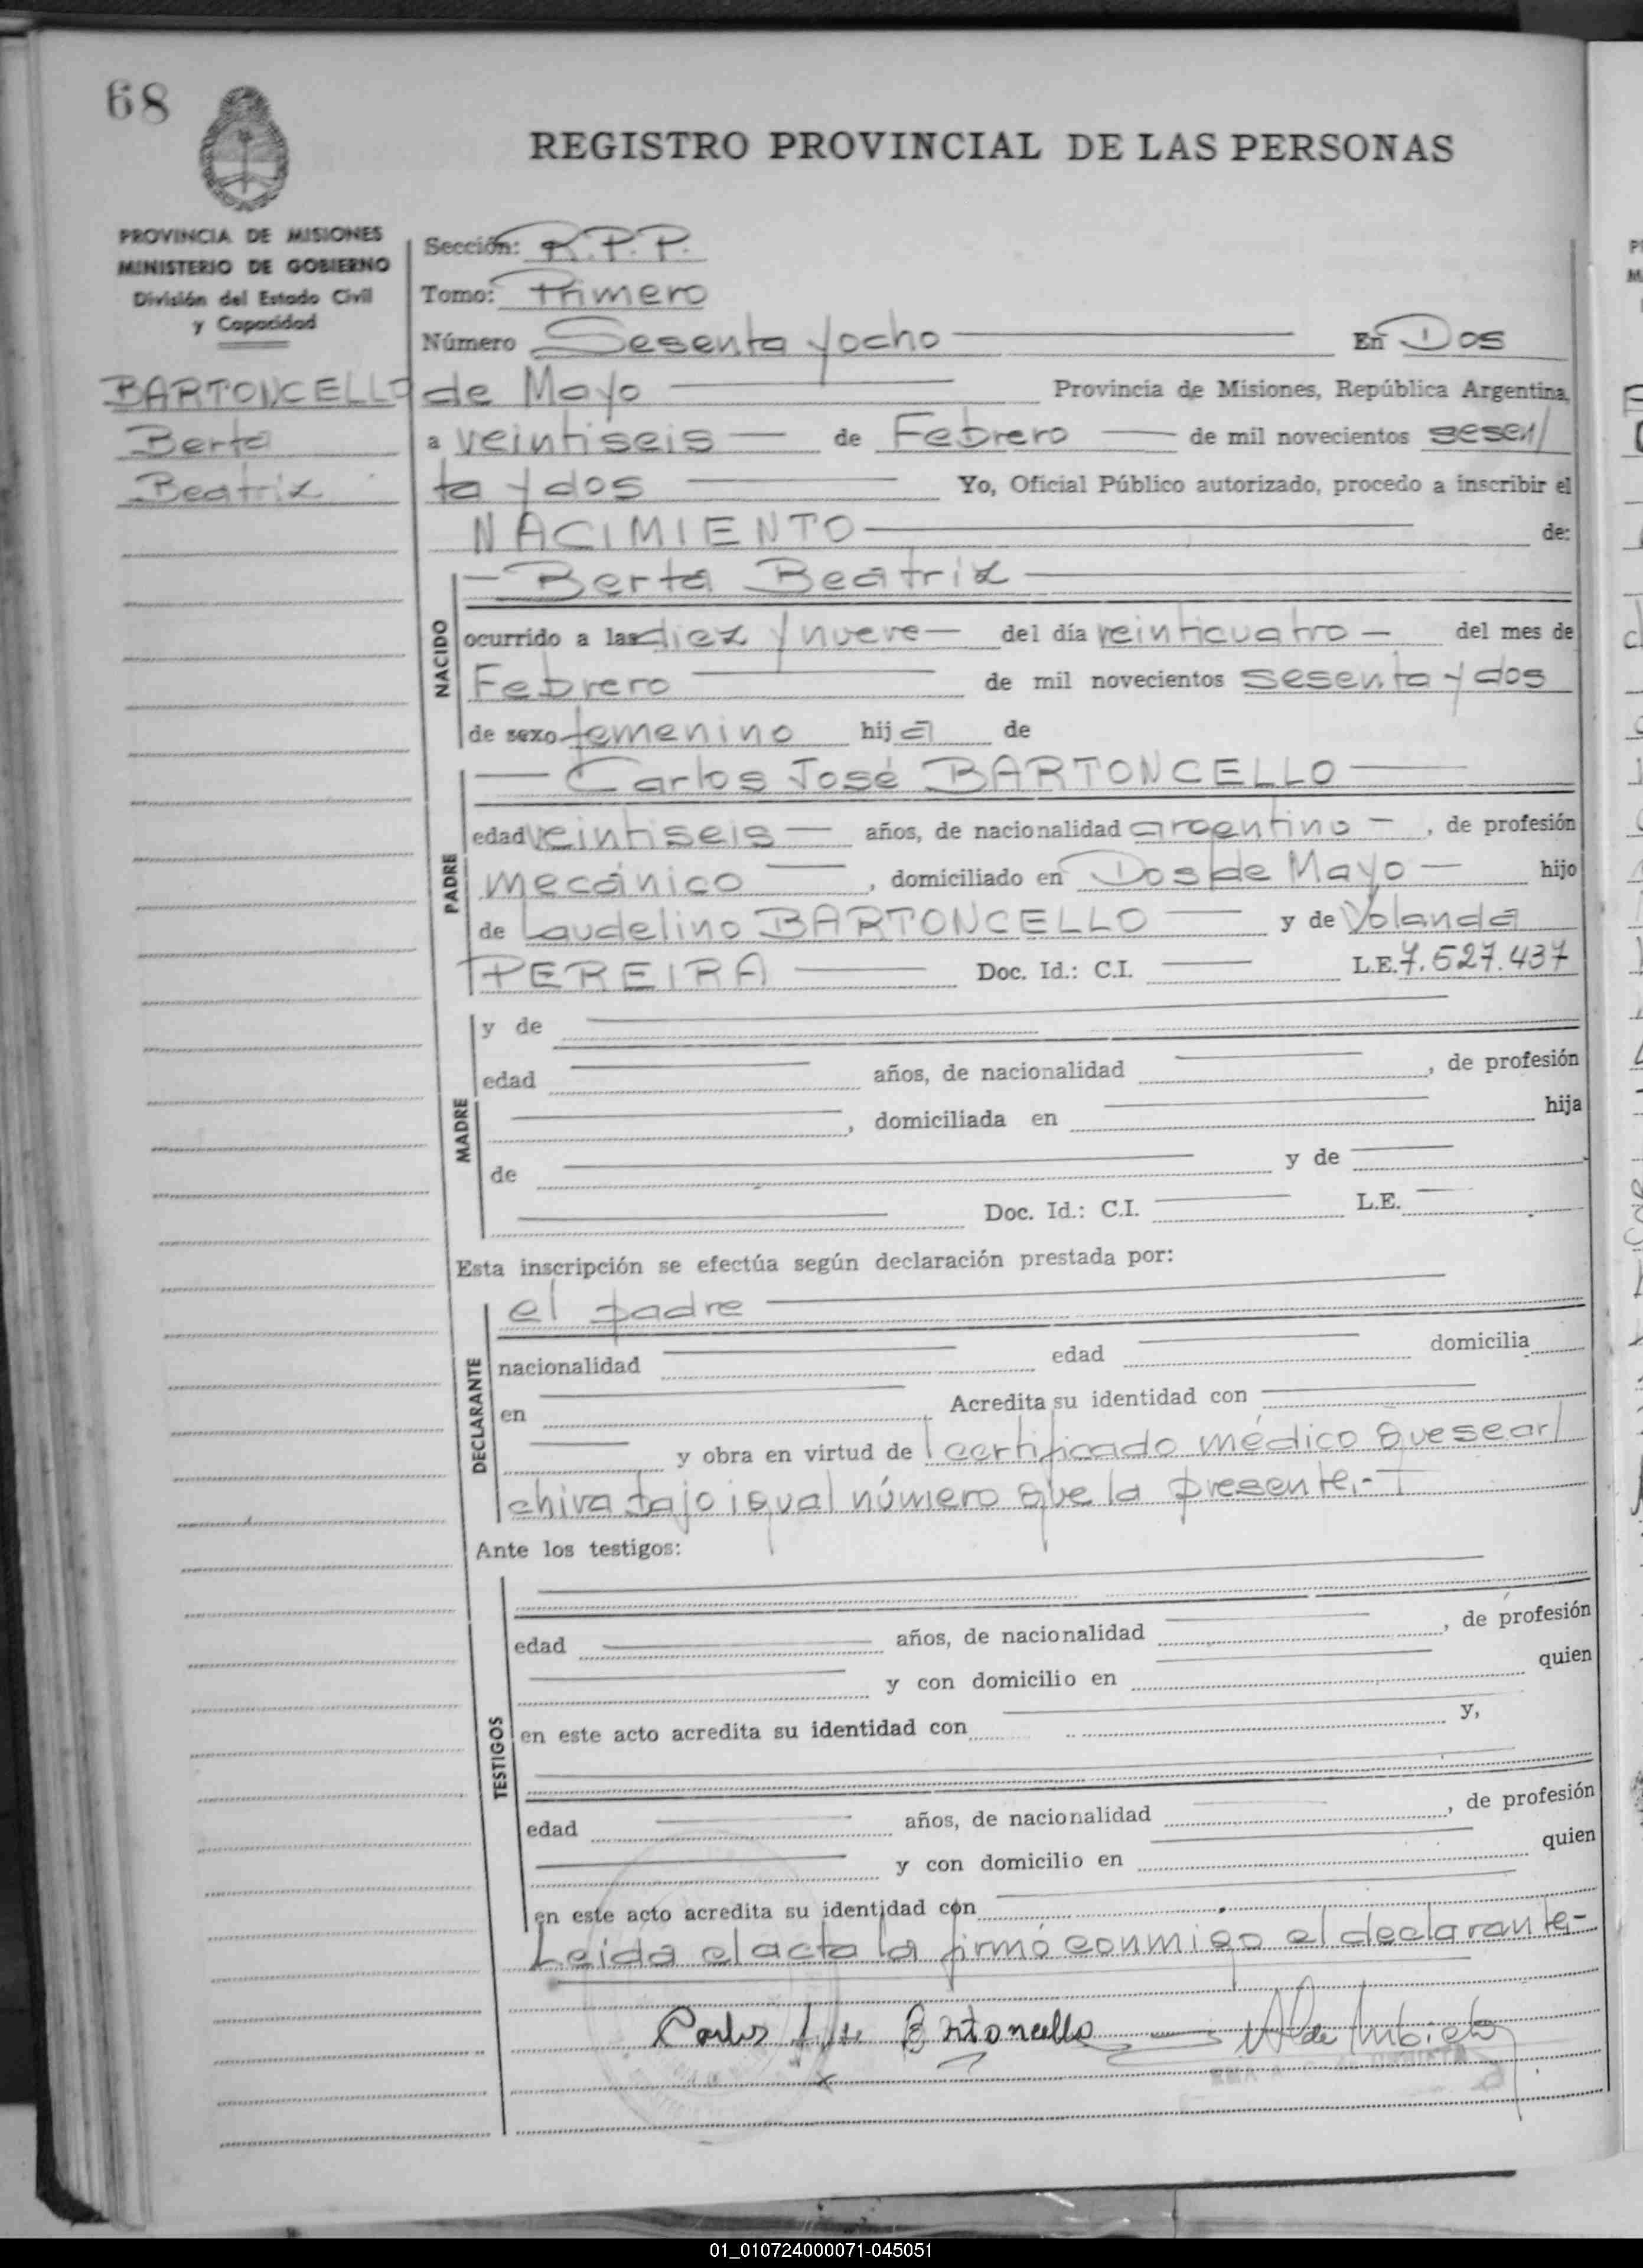 68
REGISTRO PROVINCIAL DE LAS PERSONAS
PROVINCIA DE MISIONES
MINISTERIO DE GOBIERNO
División del Estado Civil
y Capacidad
BARTONCELLO
Berta
Beatriz
Sección: R.P.P.
Tomo: Primero
Número Sesenta y ocho En Dos
de Mayo Provincia de Misiones, República Argentina,
a veintiseis de Febrero de mil novecientos sesen/
ta y dos Yo, Oficial Público autorizado, procedo a inscribir el
NACIMIENTO de:
NACIDO
Berta Beatriz
ocurrido a las diez y nueve del día veinticuatro del mes de
Febrero de mil novecientos sesenta y dos
de sexo femenino hija de
PADRE
Carlos José BARTONCELLO
edad veintiseis años, de nacionalidad argentino, de profesión
mecánico, domiciliado en Dos de Mayo hijo
de Laudelino BARTONCELLO y de Yolanda
PEREIRA Doc. Id.: C.I. L.E. 7.527.437
MADRE
y de
edad años, de nacionalidad , de profesión
, domiciliada en hija
de y de
Doc. Id.: C.I. L.E.
Esta inscripción se efectúa según declaración prestada por:
DECLARANTE
el padre
nacionalidad edad domicilia
en Acredita su identidad con
y obra en virtud de certificado médico que se ar/
chiva bajo igual número que la presente.-
Ante los testigos:
TESTIGOS
edad años, de nacionalidad , de profesión
y con domicilio en quien
en este acto acredita su identidad con y,
edad años, de nacionalidad , de profesión
y con domicilio en quien
en este acto acredita su identidad con
Leida el acta la firmó conmigo el declarante-
Carlos José Bartoncello
01_010724000071-045051